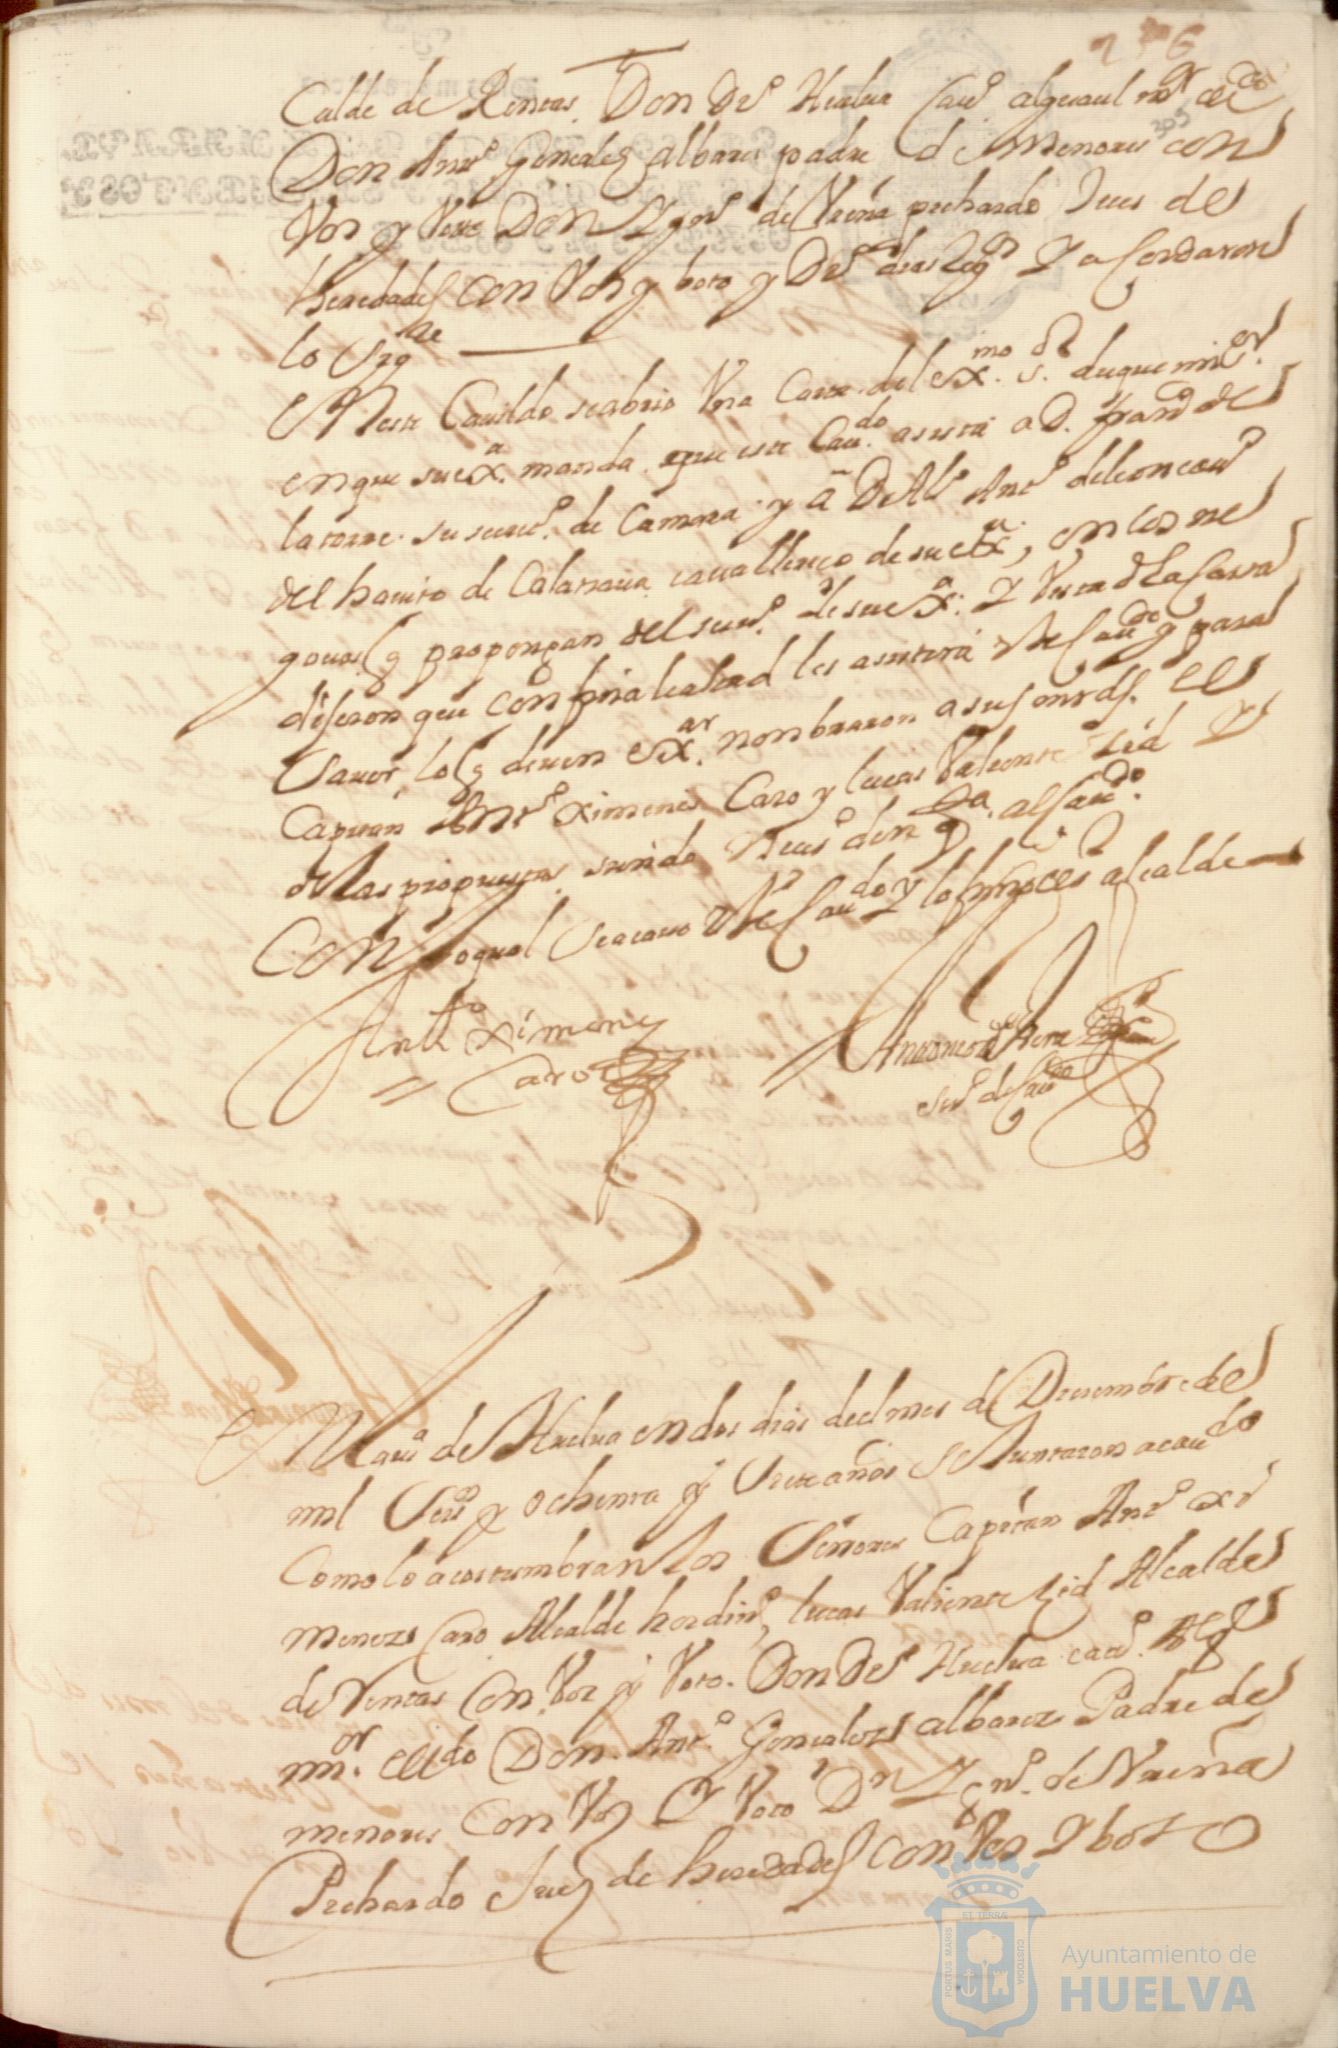 276
305
calde de Rentas. Don Dio Huelua cauo alguaçil mor
Don Anto Gonsales albares padre de Menores con
Voz y Voto Don de Vreña pechardo Jues de
heredades con Voz y boto y Y acordaron
lo Sigte
Neste Cauildo se abrio Vna Carta del exmo sr duque mi sr
en que su exa manda que este Caudo asista a D. Frando de
la torre su secreo de Camara y a Anto de leon cauo
del hauito de Calatraua cauallerico de su exa, en los ne
gocios q propongan del seruo de su exa Y Vista dha Carta
dijeron que con fina lealtad les asistirá este Caudo y para
lo q deuen exar nonbraron a sus mrds. el
Capitan Anto Ximenes Caro y lucas Valiente Zid Y
de las propuestas den qta al Caudo
Con lo qual se acauo este Caudo y lo firmo el sr alcalde
Antto Ximenez
Caro
Antonio de
Sno de Caudo
Na Va de Huelua en dos dias del mes de Diziembre de
mil Seissos y ochenta y Siete años se Juntaron a caudo
Como lo acostumbran los Señores Capitan Anto xi
menezs Caro Alcalde hordino, lucas Valiente Zid Alcalde
de Rentas Con Voz y Voto. Don Dio Huelua cauo Algl
mor Don Anto Gonsalezs albarez Padre de
menores Con Voz Y Voto Dn de Vreña
Pechardo Juez de heredades con Voz Y boto
PORTUS MARIS
ET TERRÆ
CUSTODIA
Ayuntamiento de
HUELVA